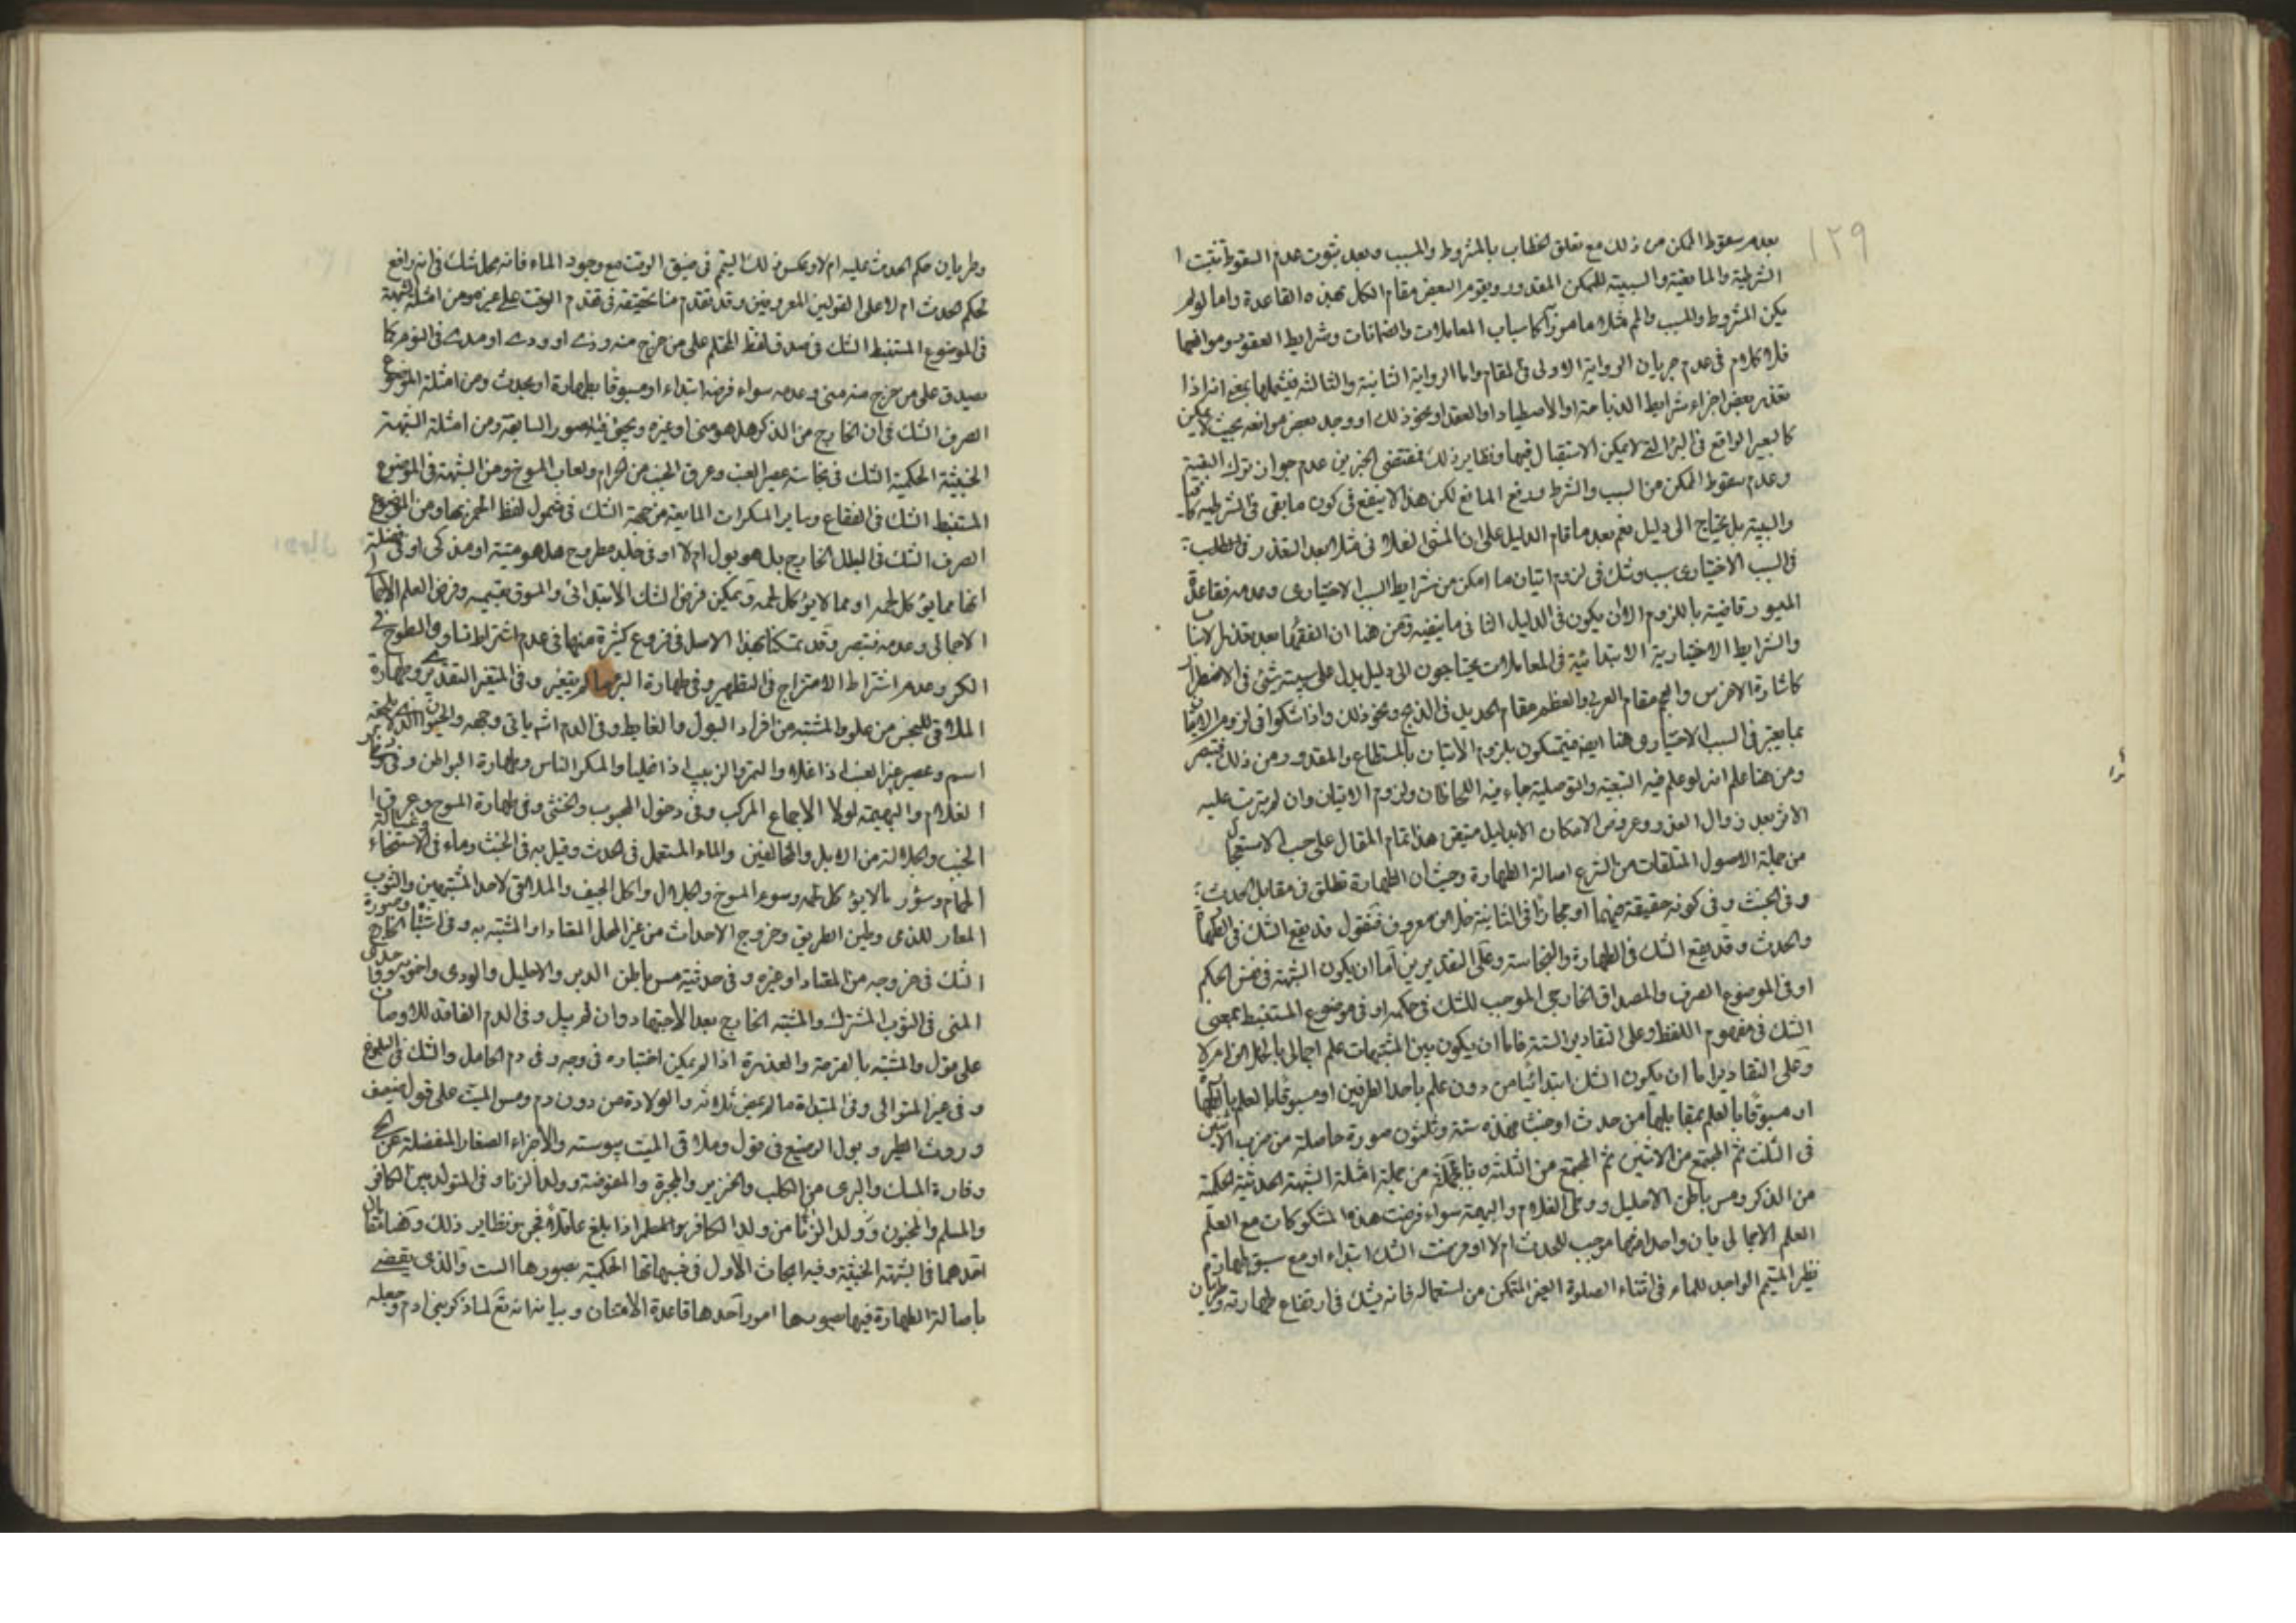 ١٢٩
بعدم سقوط الممكن من ذلك مع تعلق الخطاب بالمشروط والمسبب وبعد ثبوت عدم السقوط تثبت
الشرطية والمانعية والسببية للممكن المقدور ويقوم البعض مقام الكل بهذه القاعدة واما لو لم
يكن المشروط والمسبب مامورا كاسباب المعاملات والضمانات وشرايط العقود وموانعها
فلا كلام في عدم جريان الرواية الاولى في المقام واما الرواية الثانية والثالثة بمعنى انه اذا
تعذر بعض اجزاء شرايط الذباحة او الاصطياد او العقد او نحو ذلك او وجد بعض موانعه بحيث لا يمكن
كالبعير الواقع في البئر التي لا يمكن الاستقبال فيها ونظاير ذلك فمقتضى الخبرين عدم جواز ترك البقية
وعدم سقوط الممكن من السبب والشرط ورفع المانع لكن هذا لا ينفع في كون ما بقى في الشرطية
والسببية بل يحتاج الى دليل نعم بعد ما قام الدليل على ان الشئ الفلاني مثلا بعد التعذر
في السبب الاختياري سبب وشك في لزوم اتيان ما امكن من شرايط السبب الاختياري وعدمه فقاعدة
الميسور قاضية باللزوم الا ان يكون في الدليل الثاني ما ينفيه ومن هنا ان الفقهاء بعد تعذر الاسباب
والشرايط الاختيارية الابتدائية في المعاملات يحتاجون الى دليل يدل على سببية شئ في الاضطرار
كاشارة الاخرس والعجم مقام العربي والعظم مقام الحديد في الذبح ونحو ذلك واذا شكوا في لزوم الاتيان
بما يعتبر في السبب الاختياري هنا ايضا فيتمسكون بلزوم الاتيان بالمستطاع والمقدور ومن ذلك فتبصر
ومن هنا علم انه لو علم فيه التبعية والتوصلية جاء فيه اللحاظان ولزوم الاتيان وان لم يترتب عليه
الاثر بعد زوال العذر وعروض الامكان الا بدليل متيقن هذا تمام المقال على حسب الاستعجال
من جملة الاصول المتلقات من الشرع اصالة الطهارة وحيث ان الطهارة تطلق في مقابل الحدث
وفي الخبث وفي كونه حقيقة فيهما او مجازا في الثانية خلاف معروف فنقول قد يقع الشك في الطهارة
والحدث وقد يقع الشك في الطهارة والنجاسة وعلى التقديرين اما ان يكون الشبهة في نفس الحكم
او في الموضوع الصرف والمصداق الخارجي الموجب للشك في حكمه او في موضوع المستنبط بمعنى
الشك في مفهوم اللفظ وعلى التقادير الستة فاما ان يكون بين المشتبهات علم اجمالي بالحال او لا
وعلى التقادير اما ان يكون الشك ابتدائيا من دون علم باحد الطرفين او مسبوقا بالعلم بالطهارة
او مسبوقا بالعلم بمقابلها من حدث او خبث فهذه ستة وثلثون صورة حاصلة من ضرب الاثنين
في الثلث ثم المجتمع من الاثنين ثم المجتمع من الثلثة من جملة امثلة الشبهة الحدثية الحكمية
من الذكر ومس باطن الاحليل ووطى الغلام والبهيمة سواء فرضت هذه المشكوكات مع العلم
العلم الاجمالي بان واحدا منها موجب للحدث ام لا او فرضت الشك ابتداء او مع سبق طهارة
نظير المتيمم الواجد للماء في اثناء الصلوة الغير المتمكن من استعماله فانه يشك في ارتفاع طهارته وطريان
وطريان حكم الحدث عليه ام لا وبعكس ذلك التيمم في ضيق الوقت مع وجود الماء فانه محل شك في انه رافع
لحكم الحدث ام لا على القولين المعروفين وقد تقدم منا تحقيقه في تقدم الوقت على غيره ومن امثلة الشبهة
في الموضوع المستنبط الشك في صدق لفظ المحتلم على من خرج منه وذي او ودي او مذي في النوم كما
يصدق على من خرج منه مني وعدمه سواء فرضه ابتداء او مسبوقا بطهارة او بحدث ومن امثلة الموضوع
الصرف الشك في ان الخارج من الذكر هل هو مني او غيره ويجئ فيه الصور السابقة ومن امثلة الشبهة
الخبثية الحكمية الشك في نجاسة عصير العنب وعرق الجنب من الحرام ولعاب المسوخ ومن الشبهة في الموضوع
المستنبط الشك في الفقاع وساير المسكرات المايعة من جهة الشك في شمول لفظ الخمر لها ومن الموضوع
الصرف الشك في البلل الخارج بل هو بول ام لا او في جلد مطروح هل هو ميتة او مذكى او في فضلة
انها مما يؤكل لحمه او مما لا يؤكل لحمه ويمكن فرض الشك الابتدائي والمسبوق بقسميه وفرض العلم
الاجمالي وعدمه فتبصر وقد تمسكنا بهذا الاصل في فروع كثيرة منها في عدم اشتراط تساوي السطوح في
الكر وعدم اشتراط الامتزاج في التطهير وفي طهارة البئر ما لم يتغير وفي المتغير التقديري وطهارة
الملاقي للنجس من علو والمشتبه من افراد البول والغايط وفي الدم
اسم وعصير العنب اذا غلا والتمر والزبيب اذا غليا والمسكر الناس وطهارة البواطن وفي
الغلام والبهيمة لولا الاجماع المركب وفي دخول المجبوب والخنثى وفي طهارة المسوخ وعرق
الجنب والجلالة من الابل والمخالفين والماء المستعمل في الحدث وقيل به في الخبث وماء في الاستنجاء
الحمام وسؤر ما لا يؤكل لحمه وسؤر المسوخ والجلال واكل الجيف والملاقي لاحد المشتبهين والثوب
المعار للذمي وطين الطريق وخروج الاحداث من غير المحل المعتاد او المشتبه به وفي اشتباه الخارج وصورة
الشك في خروجه من المعتاد او غيره وفي حدثية مس باطن الدبر والاحليل والودي
المني في الثوب المشترك والمشتبه الخارج بعد الاجتهاد وان لم يبل وفي الدم الفاقد للاوصاف
على قول والمشتبه بالقرحة والعذرة اذا لم يمكن اختباره في وجه وفي دم الحامل والشك في البلوغ
وفي غير المتوالي وفي المبتداة ما لم يمض ثلاثة والولادة من دون دم ومس الميت على قول ضعيف
وروث الطير وبول الرضيع في قول وملاقي الميت يبوسته والاجزاء الصغار المنفصلة عن الحي
وفارة المسك والبري من الكلب والخنزير والمجبرة والمفوضة وولد الزنا وفي المتولد بين الكافر
والمسلم والمجنون وولد الزنا من ولد الكافر والمسلم اذا بلغ عاقلا ونظاير ذلك وههنا مقامان
احدهما في الشبهة الخبثية وفيه ابحاث الاول في شبهاتها الحكمية بصورها الست والذي يقضي
باصالة الطهارة فيها بصورها امور احدها قاعدة الامتنان وبيانه انه تعالى لما ذكر بني ادم وجعله